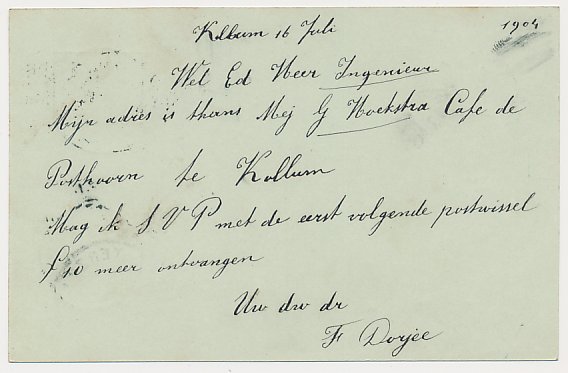 Kollum 16 Juli
1904
Wel Ed Heer Ingenieur
Mijn adres is thans Mej G Hoekstra Cafe de
Posthoorn te Kollum
Mag ik S V P met de eerst volgende postwissel
f 10 meer ontvangen
Uw dw dr
F Dorjee